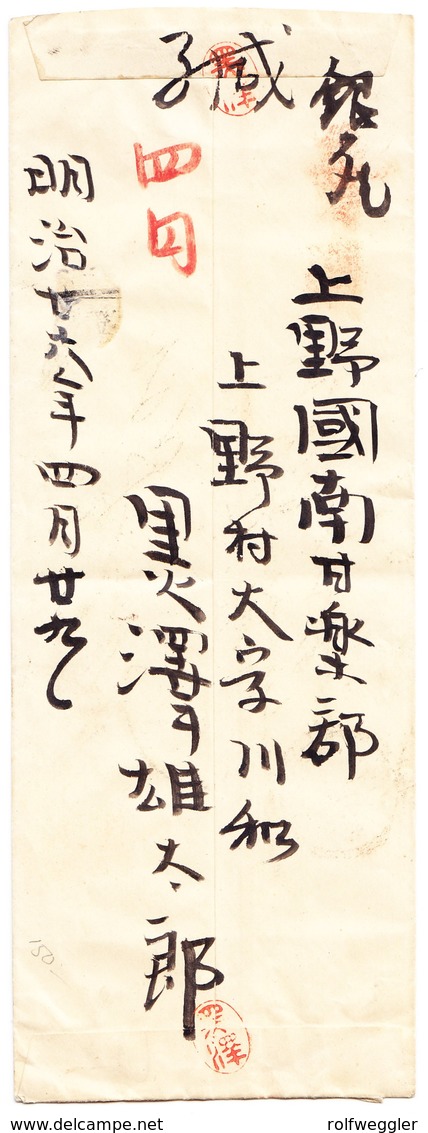 上野國南甘楽郡
上野村大字川和
黒澤雄太郎
四月
明治廿六年四月廿九
黒澤
150
DELCAMPE.NET
rolfweggler